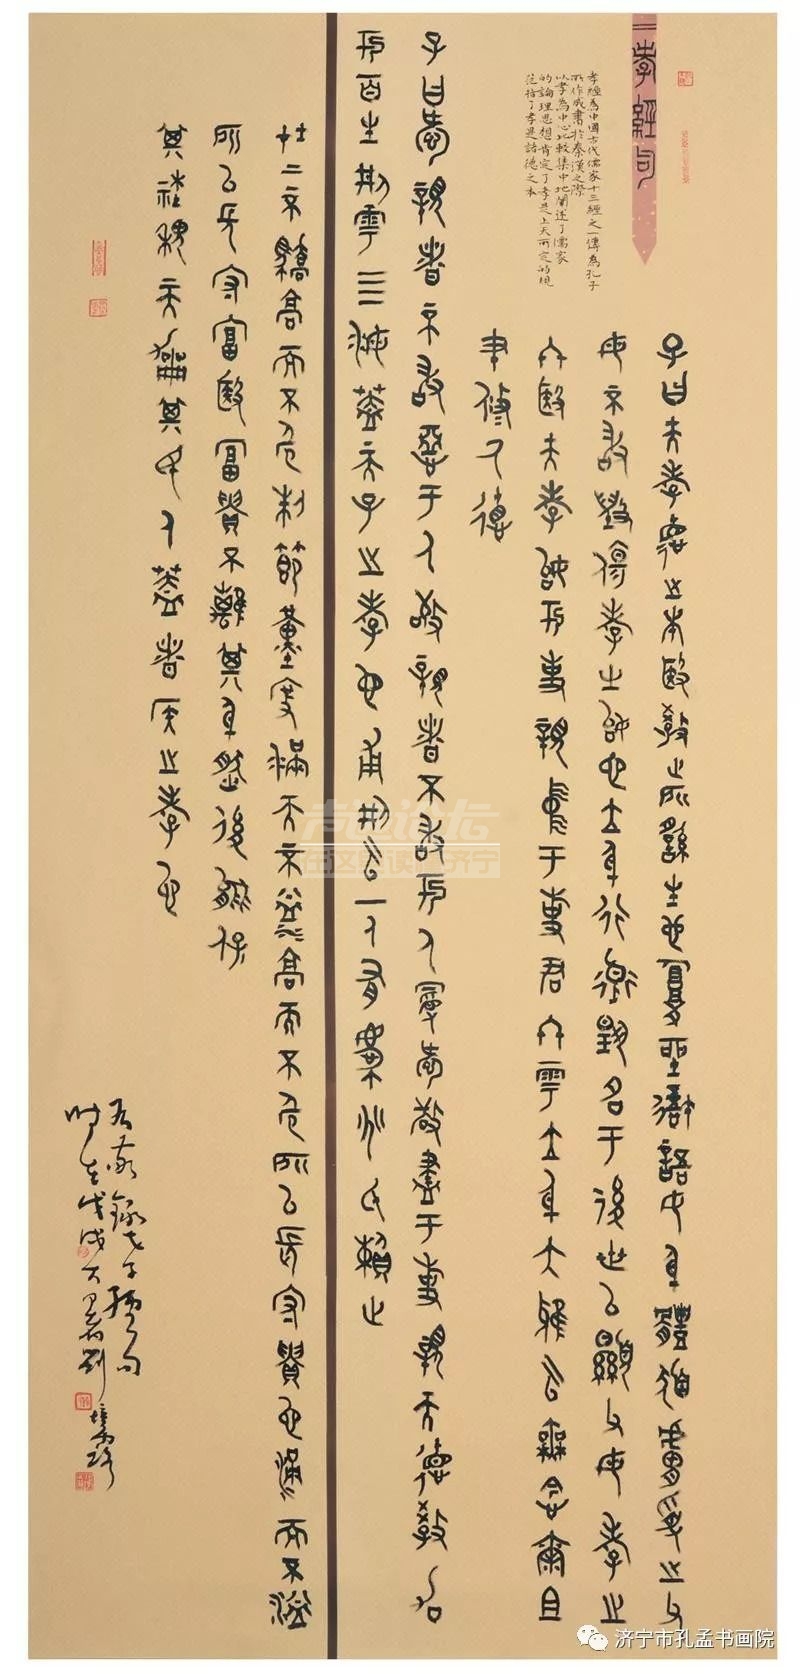 孝經句
孝經為中國古代儒家十三經之一傳為孔子
所作成書於秦漢之際
以孝為中心比較集中地闡述了儒家
的論理思想肯定了孝是上天所定的規
范指了孝是諸德之本
子曰夫孝德之本也教之所繇生也復坐吾語女身體髮膚受之父
母不敢毀傷孝之始也立身行道揚名于後世以顯父母孝之
終也夫孝始於事親中于事君終于立身大雅云無念爾且
聿修厥德
子曰愛親者不敢惡于人敬親者不敢於人愛敬盡于事親而德教加
於百生刑于三海蓋天子之孝也甫刑云一人有慶兆民賴之
在上不驕高而不危制節謹度滿而不溢高而不危所以長守貴也滿而不溢
所以長守富也富貴不離其身然後能保
其社稷而和其民人蓋者侯之孝也
右敬錄孝經句
時在戊戌大暑劉
济宁市孔孟书画院